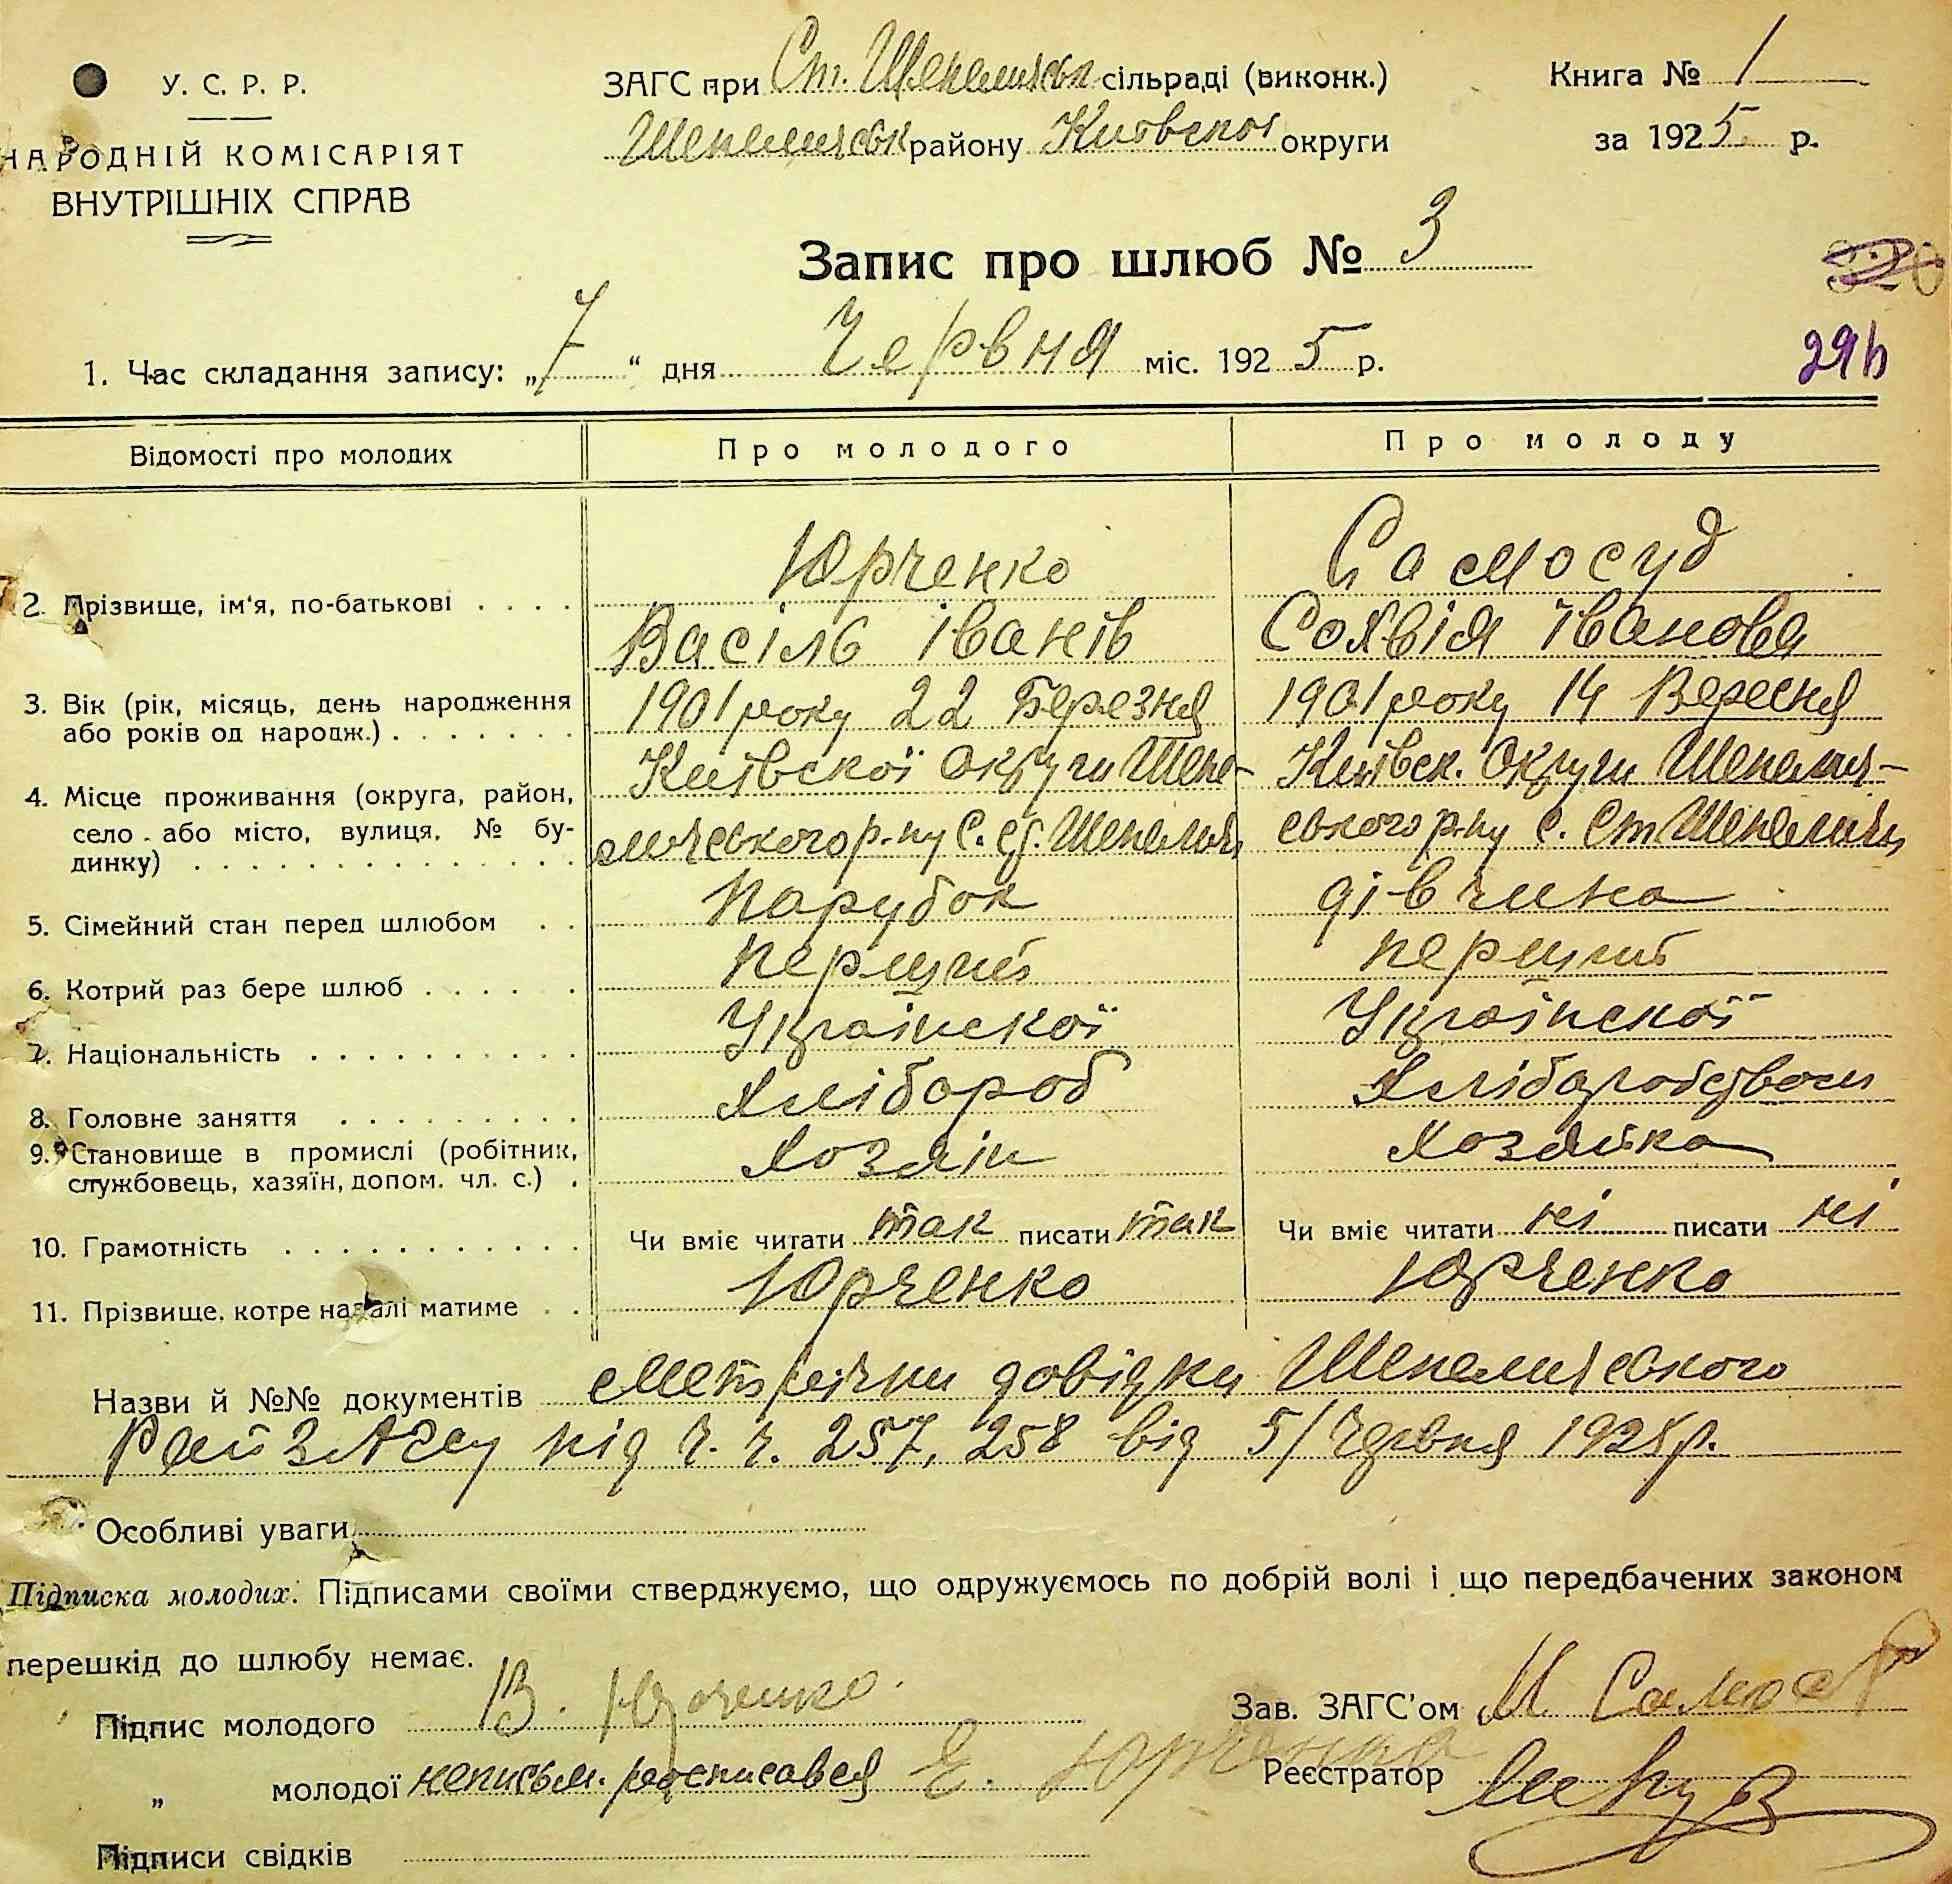 У. С. Р. Р.
НАРОДНІЙ КОМІСАРІЯТ
ВНУТРІШНІХ СПРАВ
ЗАГС при Ст. Шепелицьк сільраді (виконк.)
Шепелицьк району Київскої округи
Книга № 1
за 1925 р.
Запис про шлюб № 3
1. Час складання запису: „7“ дня Червня міс. 1925 р.
29
Відомості про молодих Про молодого Про молоду
Юрченко Самосуд
2. Прізвище, ім'я, по-батькові . . . . Васіль Іванів Іванова
3. Вік (рік, місяць, день народження 1901 року 22 Березня 1901 року 14 Вересня
або років од народж.) . . . . . . .
Київскої округи Шепе- Київск. округи Шепелич-
4. Місце проживання (округа, район,
село або місто, вулиця, № бу- личського р-ну С. Ст. Шепеличі ського р-ну С. Ст Шепеличі
динку) . . . . . . . . . . . . . .
5. Сімейний стан перед шлюбом . . парубок дівчина
6. Котрий раз бере шлюб . . . . . перший перший
7. Національність . . . . . . . . . . Українскої Українскої
8. Головне заняття . . . . . . . . . Хлібороб Хліборобством
9. Становище в промислі (робітник, Хозяін Хозяйка
службовець, хазяїн, допом. чл. с.) .
10. Грамотність . . . . . . . . . . . Чи вміє читати так писати так Чи вміє читати ні писати ні
11. Прізвище, котре надалі матиме . . Юрченко Юрченко
Назви й №№ документів Метрічни довідки Шепелицького
РайЗАГСу під ч. ч. 257, 258 від 5/Червня 1925 р.
Особливі уваги
Підписка молодих. Підписами своїми стверджуємо, що одружуємось по добрій волі і що передбачених законом
перешкід до шлюбу немає.
Підпис молодого В. Юрченко.
Зав. ЗАГС'ом М Самос
„ молодої неписьм. росписався Є. Юрченко
Реєстратор
Підписи свідків